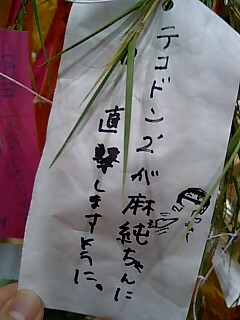 テコドン2が麻純ちゃんに
直撃しますように。